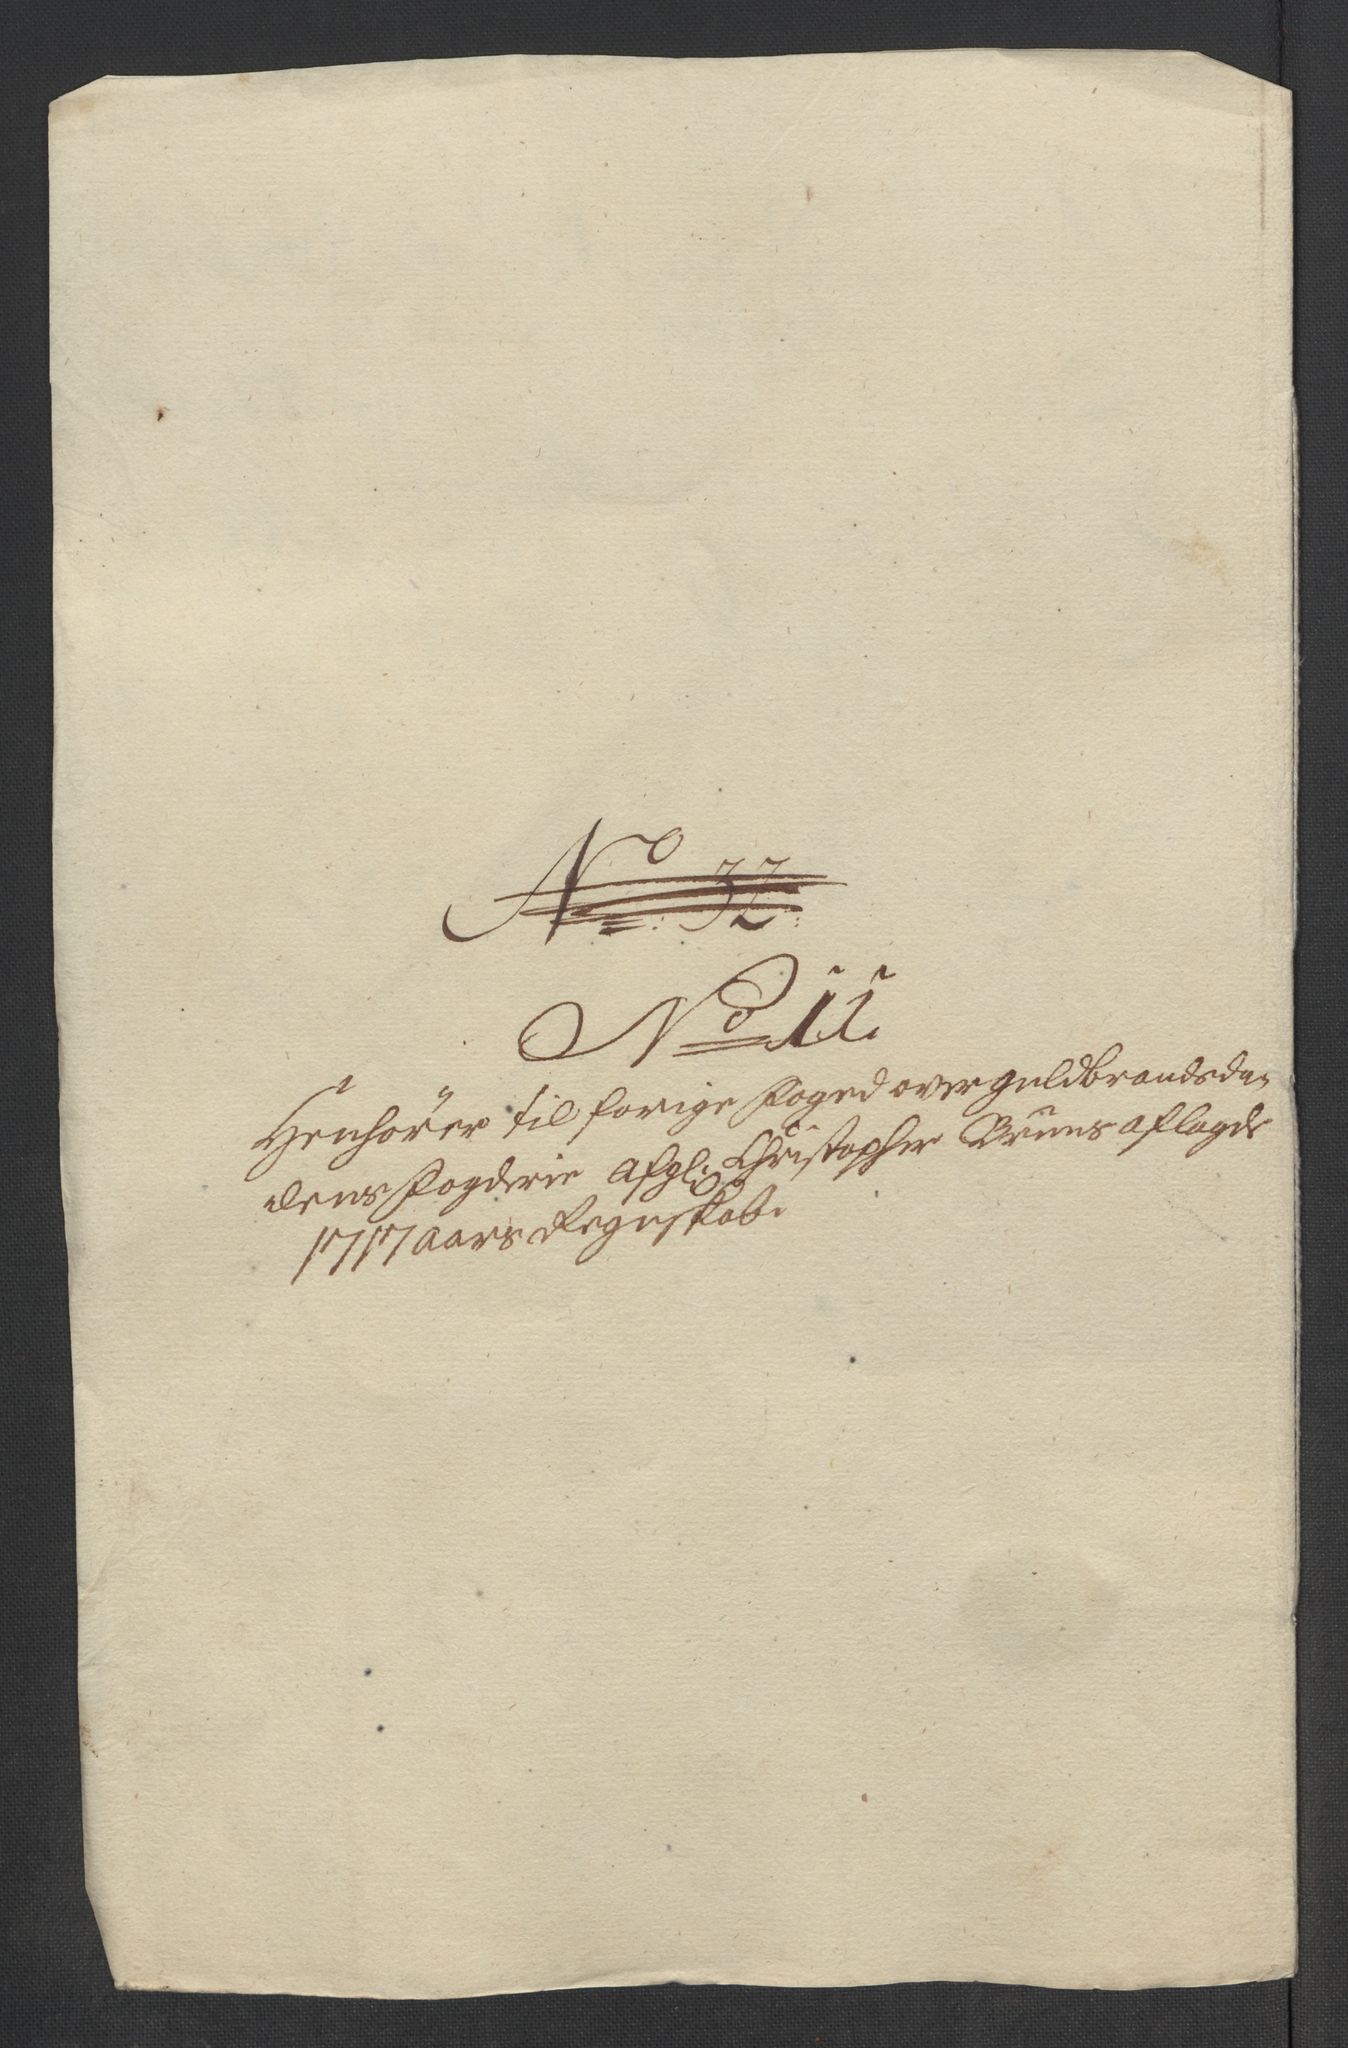 No 32
No 11
Henhører til forige Foged over guldbrandsda-
lens Fogderie Afgl: Christopher Bruuns aflagde
1717 Aars Regnskab.